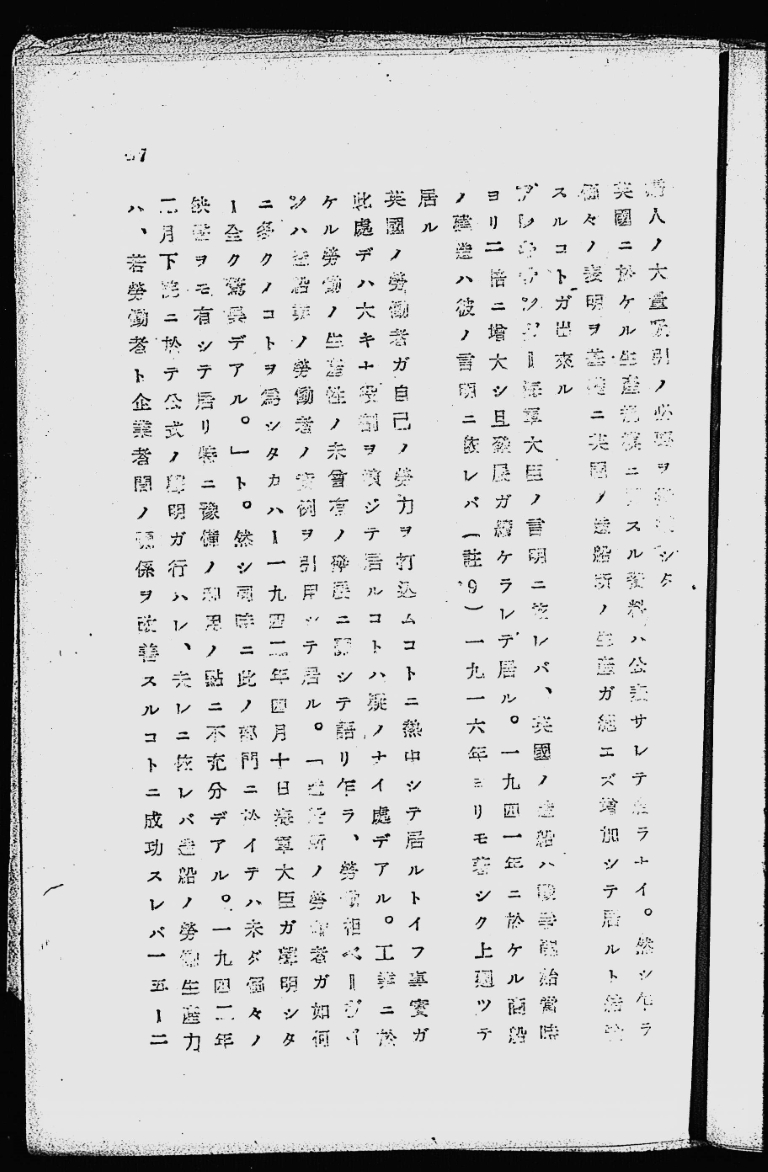 入ノ大量吸引ノ必要ヲ シタ
英國ニ於ケル生産規模ニ スル資料ハ公表サレテ居ラナイ。然シ乍ラ
個々ノ表明ヲ基礎ニ英國ノ造船所ノ生産ガ絶エズ増加シテ居ルト結論
スルコトガ出來ル
アレキサンダー海軍大臣ノ言明ニ依レバ、英國ノ造船ハ戰爭開始當時
ヨリ二倍ニ増大シ且發展ガ續ケラレテ居ル。一九四一年ニ於ケル商船
ノ建造ハ彼ノ言明ニ依レバ(註9)一九一六年ヨリモ著シク上廻ツテ
居ル
英國ノ勞働者ガ自己ノ勞力ヲ打込ムコトニ熱中シテ居ルトイフ事實ガ
此處デハ大キナ役割ヲ演ジテ居ルコトハ疑ノナイ處デアル。工業ニ於
ケル勞働ノ生産性ノ未曾有ノ發展ニ關シテ語リ乍ラ、勞働相ベーヴイ
ンハ造船業ノ勞働者ノ實例ヲ引用シテ居ル。「造船所ノ勞働者ガ如何
ニ多クノコトヲ爲シタカハー一九四二年四月十日海軍大臣ガ聲明シタ
ー全ク驚異デアル。」ト。然シ同時ニ此ノ部門ニ於イテハ未ダ個々ノ
缺點ヲモ有シテ居リ特ニ豫備ノ利用ノ點ニ不充分デアル。一九四二年
二月下院ニ於テ公式ノ聲明ガ行ハレ、夫レニ依レバ造船ノ勞働生産力
ハ、若勞働者ト企業者間ノ關係ヲ改善スルコトニ成功スレバ一五ー二
7